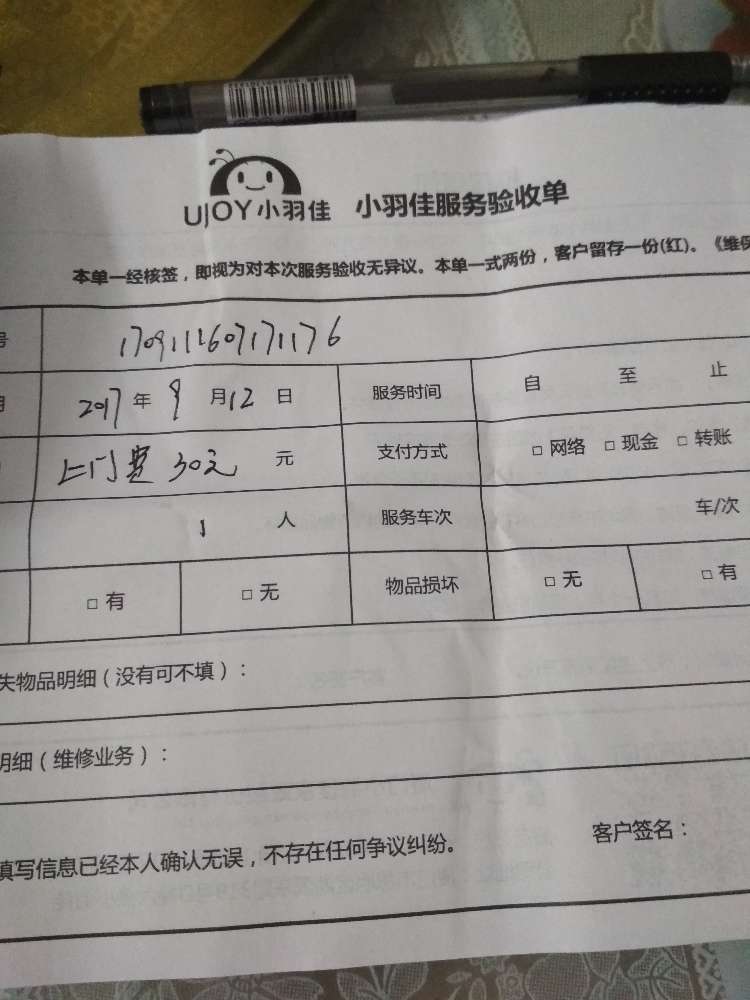 UJOY小羽佳 小羽佳服务验收单
本单一经核签，即视为对本次服务验收无异议。本单一式两份，客户留存一份(红)。《维保
号 1709111607171176
期 2017年9月12日 服务时间 自 至 止
上门费 30元 元 支付方式 □ 网络 □ 现金 □ 转账
1 人 服务车次 车/次
□ 有 □ 无 物品损坏 □ 无 □ 有
失物品明细（没有可不填）：
明细（维修业务）：
填写信息已经本人确认无误，不存在任何争议纠纷。 客户签名：